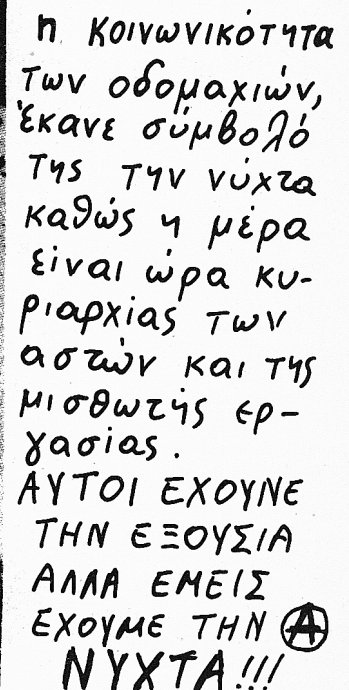 η κοινωνικότητα
των οδομαχιών,
έκανε σύμβολό
της την νύχτα
καθώς η μέρα
είναι ώρα κυ-
ριαρχίας των
αστών και της
μισθωτής ερ-
γασίας.
ΑΥΤΟΙ ΕΧΟΥΝΕ
ΤΗΝ ΕΞΟΥΣΙΑ
ΑΛΛΑ ΕΜΕΙΣ
ΕΧΟΥΜΕ ΤΗΝ Ⓐ
ΝΥΧΤΑ!!!